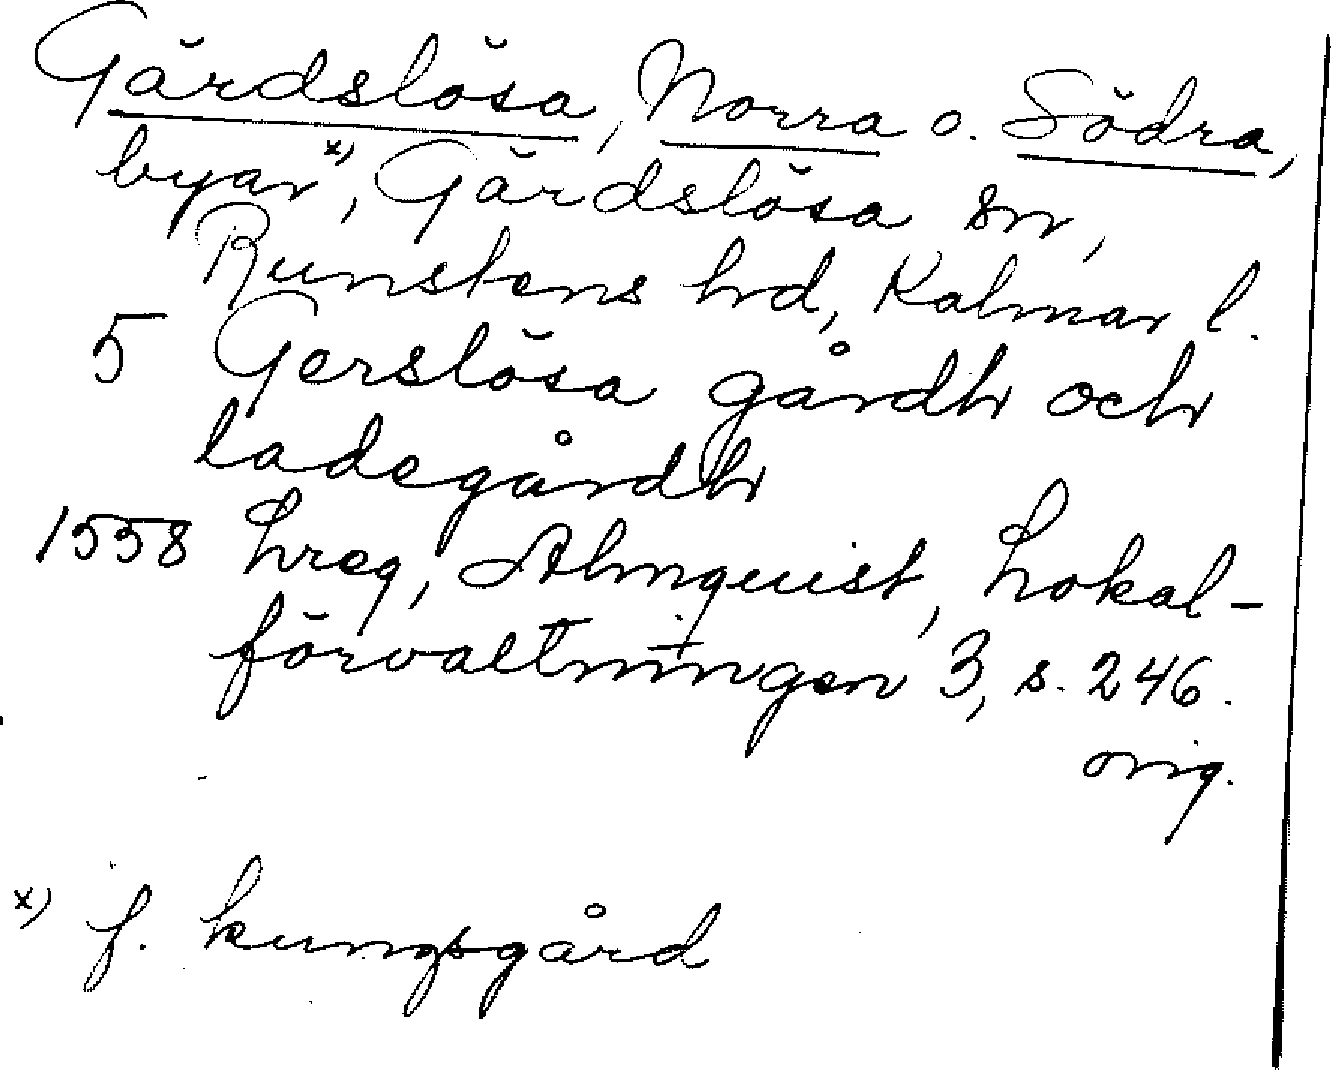 Gärdslösa, Norra o. Södra,
byar x), Gärdslösa sn,
Runstens hd, Kalmar l.
5 Gerslösa gårdh och
ladegårdh
1558 Lreg, Almquist, Lokal-
förvaltningen 3, s. 246.
orig.
x) f. kungsgård